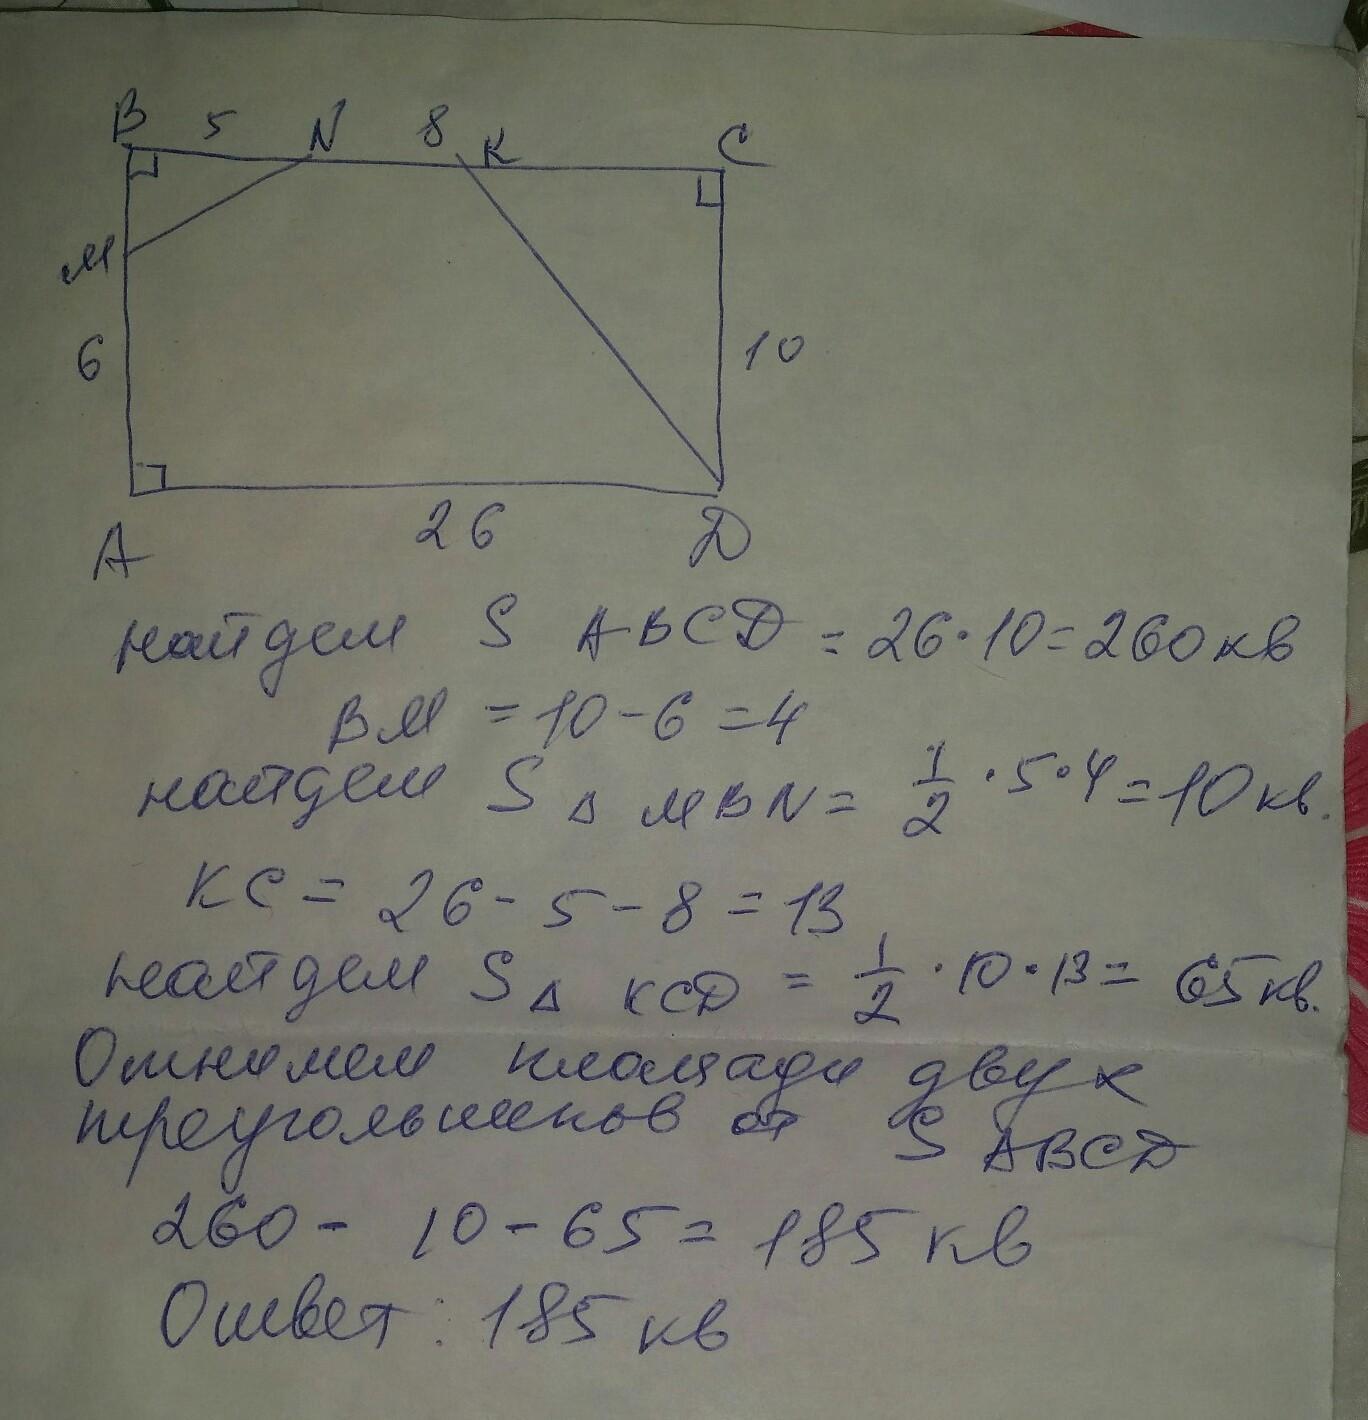 B 5 N 8 K C
M
6 10
A 26 D
найдем S ABCD = 26·10=260 кв
BM = 10-6 =4
найдем S Δ MBN = 1/2 ·5·4=10 кв.
KC = 26 - 5 - 8 = 13
найдем S Δ KCD = 1/2 · 10·13= 65 кв.
Отнимем площади двух
треугольников от S ABCD
260 - 10 - 65 = 185 кв
Ответ: 185 кв